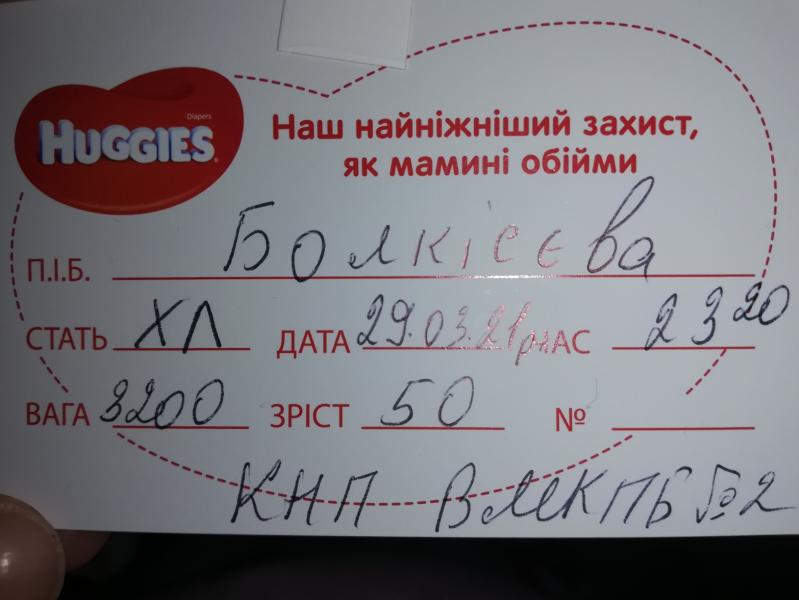 Diapers
HUGGIES
Наш найніжніший захист,
як мамині обійми
П.І.Б. Болкієєва
СТАТЬ ХЛ ДАТА 29.03.21рн ЧАС 23 20
ВАГА 3200 ЗРІСТ 50 №
КНП ВМКПБ №2